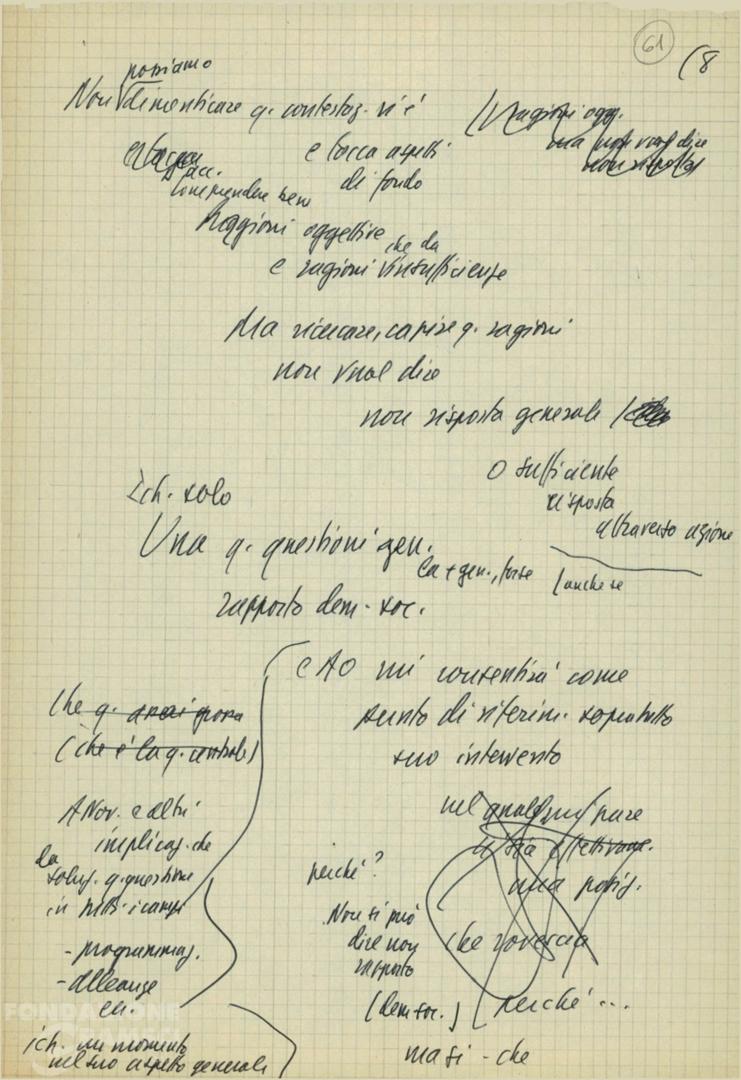 61
(8
possiamo
Non dimenticare q. contestaz. vi è
(Ragioni ogg.
ma non vuol dire
non risposta
e tocca
e tocca aspetti
di fondo
comprendere bene
Ragioni oggettive
che da
e ragioni insufficienze
Ma ricercare, capire q. ragioni
non vuol dire
non risposta generale
o sufficiente
risposta
attraverso azione
ich. solo
Una q. questioni gen.
la + gen., forse
(anche se
rapporto dem. soc.
e AO mi consentirà come
punto di riferim. sopratutto
suo intervento
che q.
(che è la q. centrale)
A Nov. e altri
implicaz. che
la
soluz. q. questione
in tutti i campi
- programmaz.
- alleanze
ecc.
ich. un momento
nel suo aspetto generale
nel quale mi pare
vi sia effettivam.
una posiz.
che rovescia
perché?
Non si può
dire non
rapporto
(dem soc.)
perché ...
ma sì - che
FONDAZIONE